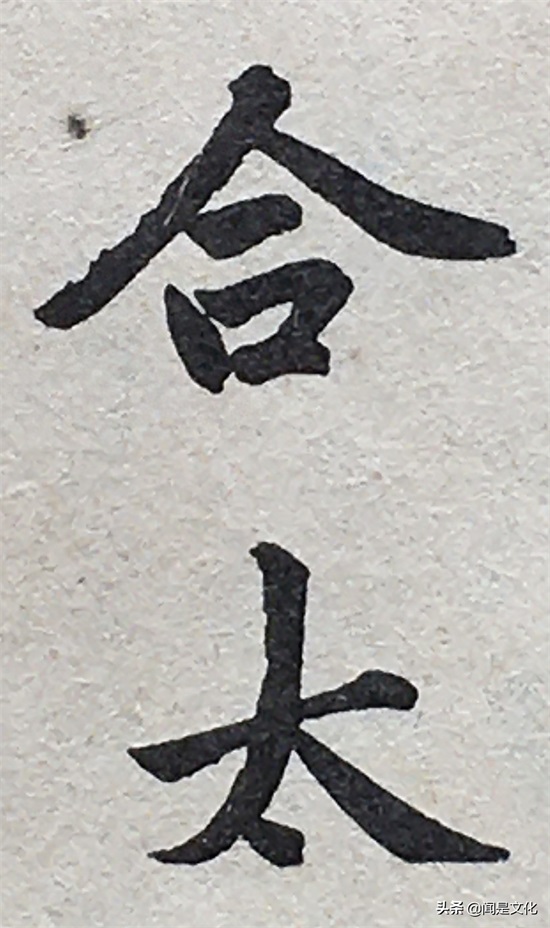 合
太
头条 @闻是文化